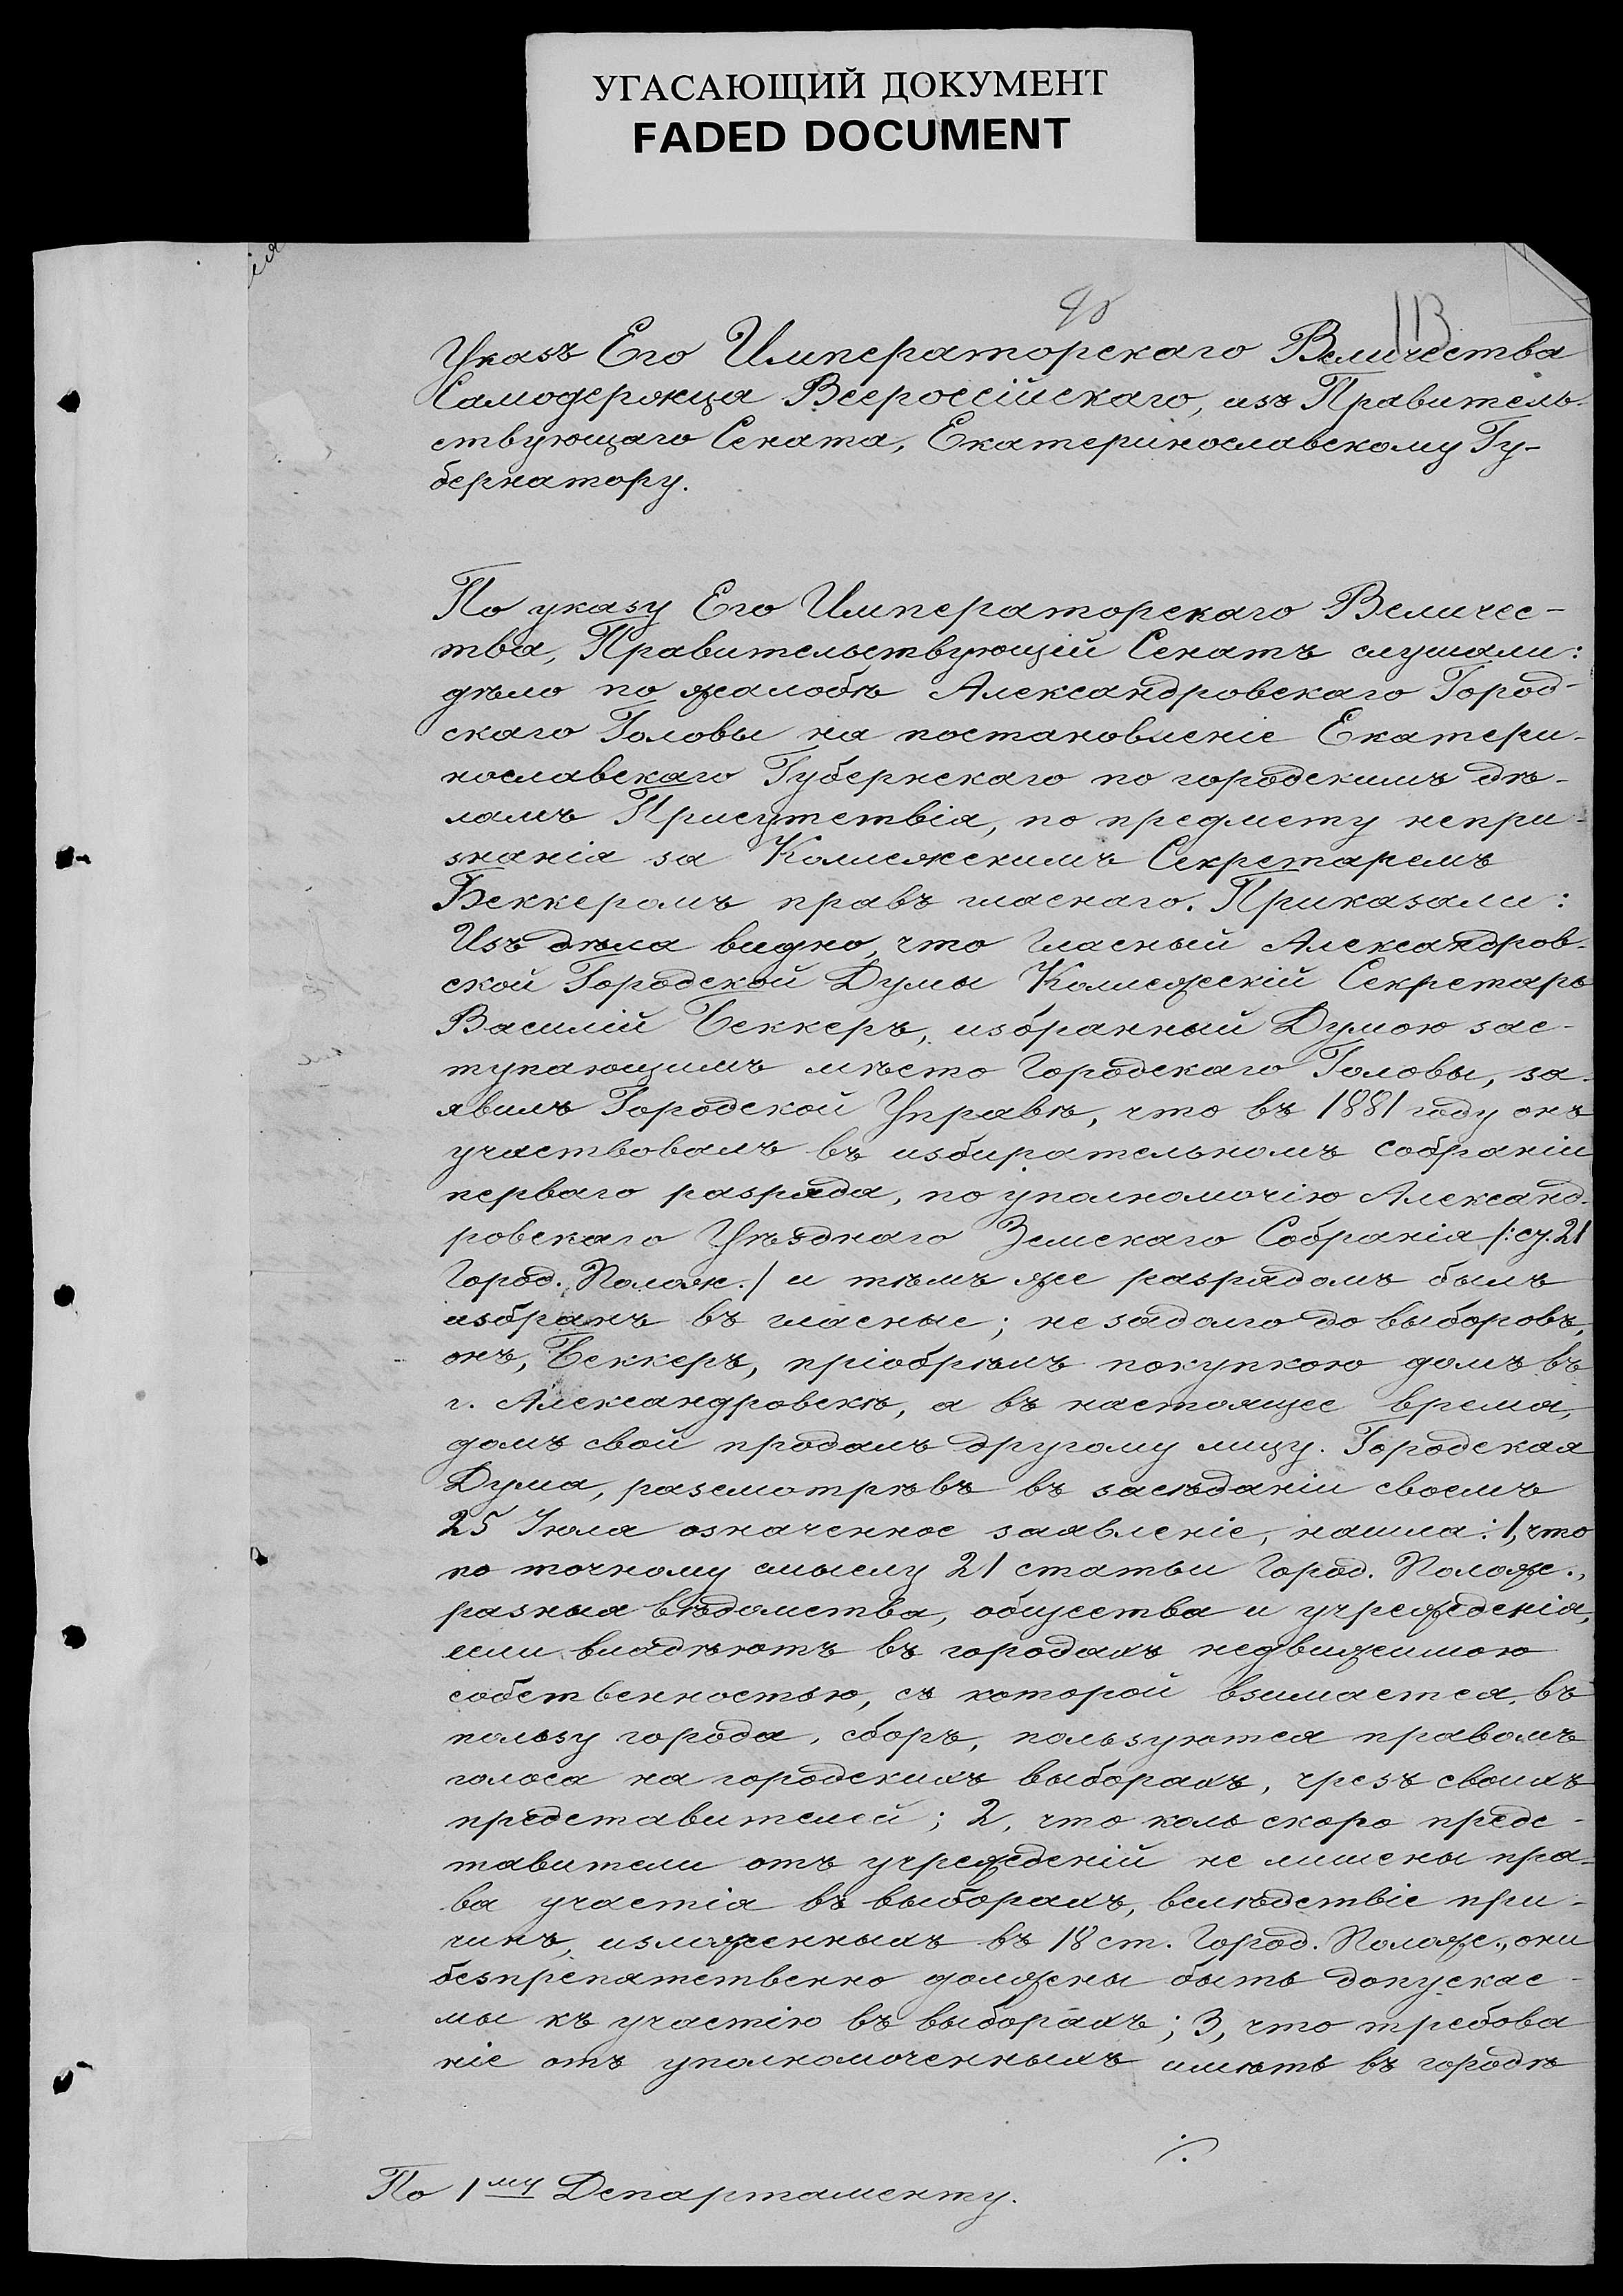 УГАСАЮЩИЙ ДОКУМЕНТ
FADED DOCUMENT
Указъ Его Императорскаго Величества
Самодержца Всероссійскаго, изъ Правитель-
ствующаго Сената, Екатеринославскому Гу-
бернатору.
По указу Его Императорскаго Величес-
тва, Правительствующій Сенатъ слушали:
дѣло по жалобѣ Александровскаго Город-
скаго Головы на постановленіе Екатери-
нославскаго Губернскаго по городскимъ дѣ-
ламъ Присутствія, по предмету непри-
знанія за Коллежскимъ Секретаремъ
Беккеромъ правъ гласнаго. Приказали:
Изъ дѣла видно, что гласный Александров-
ской Городской Думы Коллежскій Секретарь
Василій Беккеръ, избранный Думою зас-
тупающимъ мѣсто Городскаго Головы, за-
явилъ Городской Управѣ, что въ 1881 году онъ
участвовалъ въ избирательномъ собраніи
перваго разряда, по уполномочію Александ-
ровскаго Уѣзднаго Земскаго Собранія /:ст. 21
Город. Полож./ и тѣмъ же разрядомъ былъ
избранъ въ гласные; не задолго до выборовъ,
онъ, Беккеръ, пріобрѣлъ покупкою домъ въ
г. Александровскѣ, а въ настоящее время,
домъ свой продалъ другому лицу. Городская
Дума, разсмотрѣвъ въ засѣданіи своемъ
25 Іюля означенное заявленіе, нашла: 1, что
по точному смыслу 21 статьи Город. Полож.,
разныя вѣдомства, общества и учрежденія,
если владѣютъ въ городахъ недвижимою
собственностью, съ которой взимается въ
пользу города, сборъ, пользуются правомъ
голоса на городскихъ выборахъ, чрезъ своихъ
представителей; 2, что коль скоро предс-
тавители отъ учрежденій не лишены пра-
ва участія въ выборахъ, вслѣдствіе при-
чинъ, изложенныхъ въ 18 ст. Город. Полож., они
безпрепятственно должны быть допускае-
мы къ участію въ выборахъ; 3, что требова
ніе отъ уполномоченныхъ имѣть въ городѣ
По 1му Департаменту.